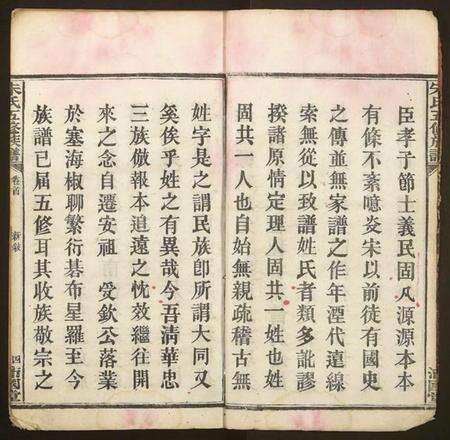 臣孝子節士義民固凡源源本本
有條不紊噫炎宋以前徒有國史
之傳並無家譜之作年湮代遠線
索無從以致譜姓氏者類多訛謬
揆諸原情定理人固共一姓也姓
固共一人也自始無親疏稽古無
姓字是之謂民族卽所謂大同又
奚俟乎姓之有異哉今吾清華忠
三族倣報本追遠之忱效繼往開
來之念自遷安祖 受欽公落業
於塞海椒聊繁衍碁布星羅至今
族譜已屆五修耳其收族敬宗之
朱氏五修族譜 卷首 四